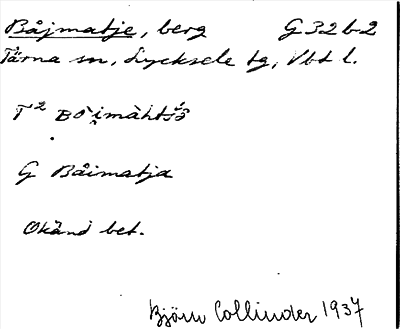 Båjmatje, berg G 32 b 2
Tärna sn, Lycksele lg, Vbt l.
T² Bòi̯màht́śɔ̄
G Båimatja
Okänd bet.
Björn Collinder 1937